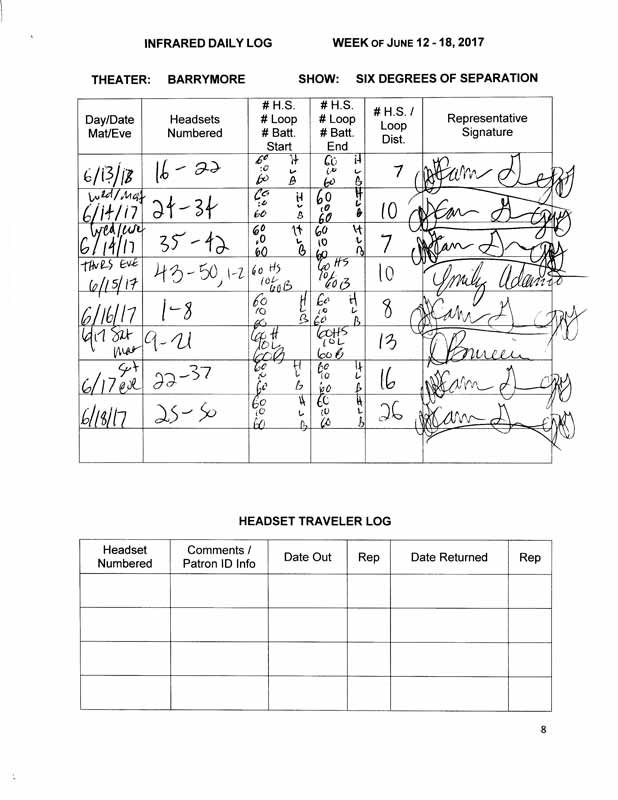 INFRARED DAILY LOG WEEK OF JUNE 12 - 18, 2017
THEATER: BARRYMORE SHOW: SIX DEGREES OF SEPARATION
Day/Date Mat/Eve Headsets Numbered # H.S. # Loop # Batt. Start # H.S. # Loop # Batt. End # H.S. / Loop Dist. Representative Signature
6/13/13 16 - 22 60 H 10 L 60 B 60 H 10 L 60 B 7
Wed/Mat 6/14/17 24 - 34 60 H 10 L 60 B 60 H 10 L 60 B 10
Wed/eve 6/14/17 35 - 42 60 H 10 L 60 B 60 H 10 L 60 B 7
THURS EVE 6/15/17 43-50, 1-2 60 HS 10L 60B 60 HS 10L 60B 10 Emily Adams
6/16/17 1-8 60 H 10 L 60 B 60 H 10 L 60 B 8
6/17 Sat mat 9-21 60 H 10 L 60B 60HS 10L 60B 13
Sat 6/17 eve 22-37 60 H 10 L 60 B 60 H 10 L 60 B 16
6/18/17 25-50 60 H 10 L 60 B 60 H 10 L 60 B 26
HEADSET TRAVELER LOG
Headset Numbered Comments / Patron ID Info Date Out Rep Date Returned Rep
8